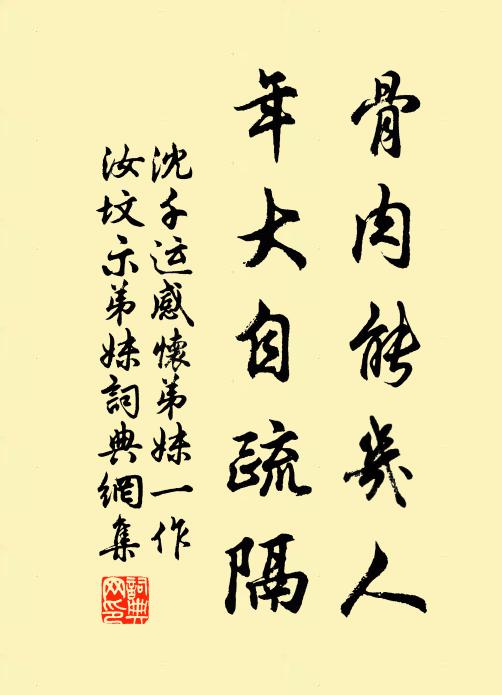 骨肉能幾人
年大自疏隔
沈千运感懷弟妹一作
汝坟示弟妹詞典網集
詞典网印